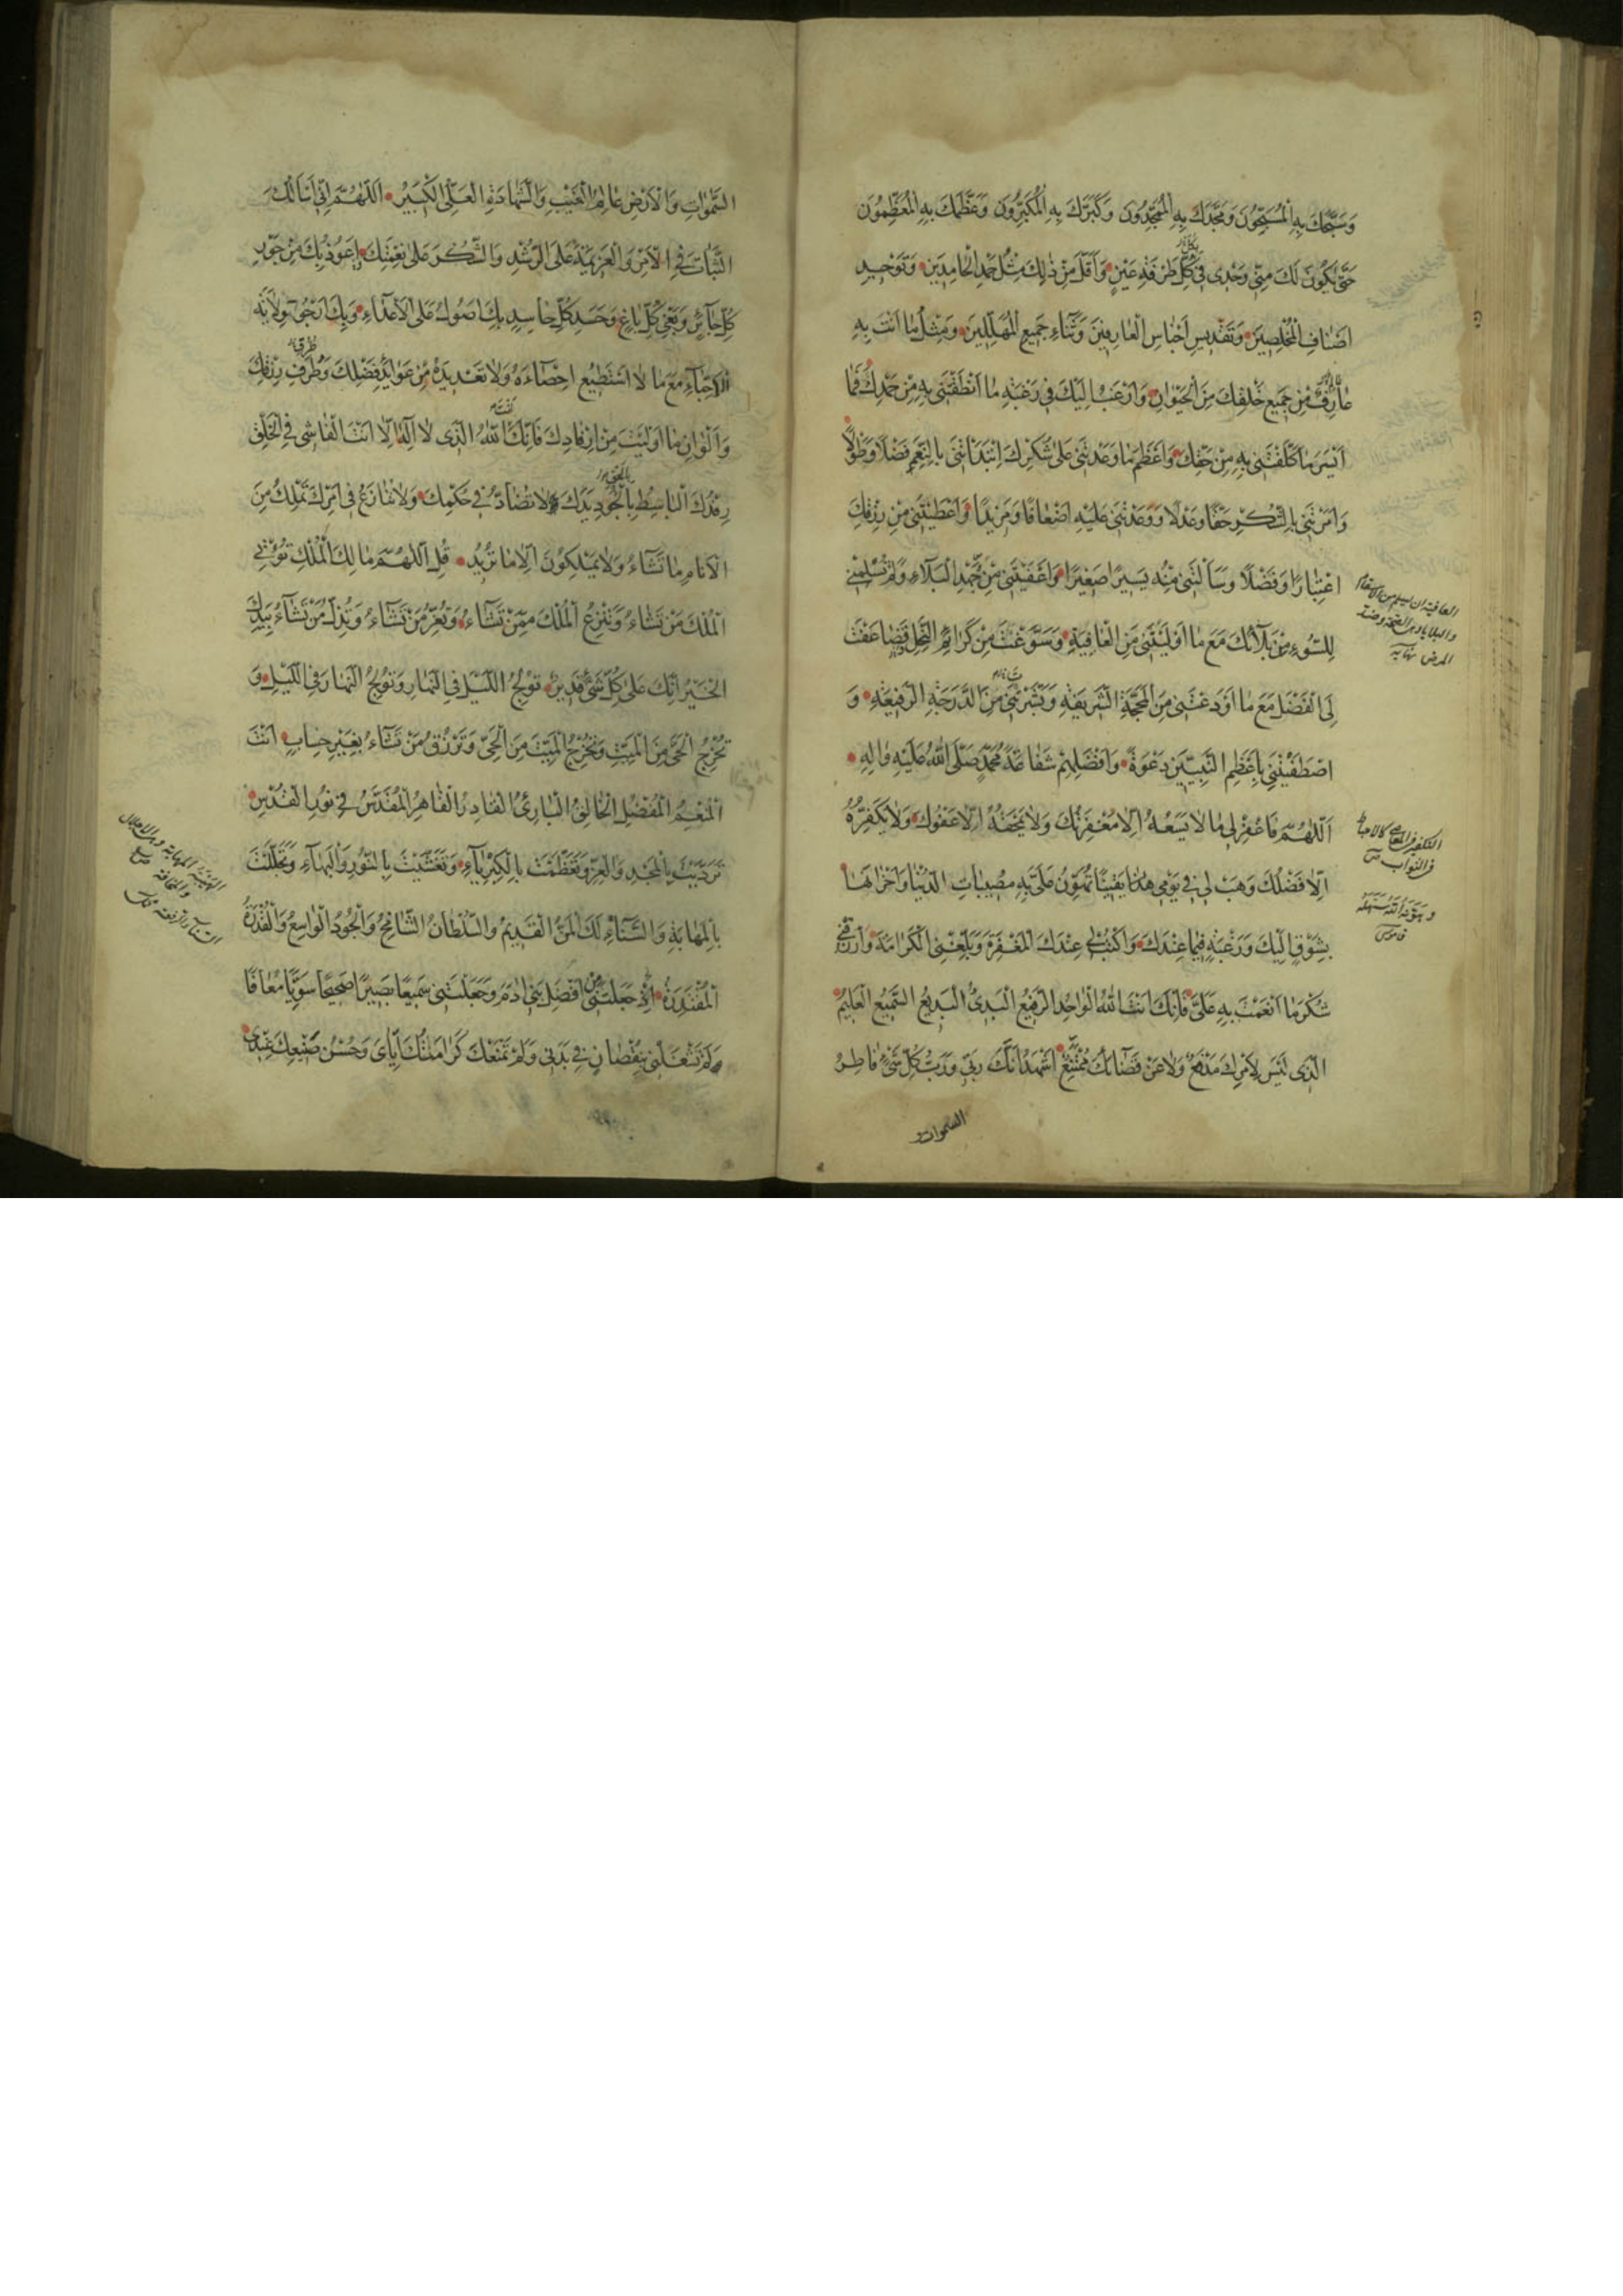 وَسَبَّحَكَ بِهِ الْمُسَبِّحُونَ وَمَجَّدَكَ بِهِ الْمُمَجِّدُونَ وَكَبَّرَكَ بِهِ الْمُكَبِّرُونَ وَعَظَّمَكَ بِهِ الْمُعَظِّمُونَ
حَتّٰى يَكُونَ لَكَ مِنّى وَحْدى فى كُلِّ طَرْفَةِ عَيْنٍ وَاَقَلَّ مِنْ ذٰلِكَ مِثْلُ حَمْدِ الْحامِدينَ وَتَوْحيدِ
اَصْنافِ الْمُخْلِصينَ وَتَقْديسِ اَجْناسِ الْعارِفينَ وَثَناءِ جَميعِ الْمُهَلِّلينَ وَمِثْلُ ما اَنْتَ بِهِ
عارِفٌ مِنْ جَميعِ خَلْقِكَ مِنَ الْحَيَوانِ وَاَرْغَبُ اِلَيْكَ فى رَغْبَةِ ما اَنْطَقْتَنى بِهِ مِنْ حَمْدِكَ فَما
اَيْسَرَ ما كَلَّفْتَنى بِهِ مِنْ حَقِّكَ وَاَعْظَمَ ما وَعَدْتَنى عَلىٰ شُكْرِكَ اِبْتَدَأْتَنى بِالنِّعَمِ فَضْلًا وَطَوْلًا
وَاَمَرْتَنى بِالشُّكْرِ حَقًّا وَعَدْلًا وَوَعَدْتَنى عَلَيْهِ اَضْعافًا وَمَزيدًا وَاَعْطَيْتَنى مِنْ رِزْقِكَ
اعْتِبارًا وَفَضْلًا وَسَاَلْتَنى مِنْهُ يَسيرًا صَغيرًا وَاَعْفَيْتَنى مِنْ جَهْدِ الْبَلاءِ وَلَمْ تُسْلِمْنى
لِلسُّوءِ مِنْ بَلائِكَ مَعَ ما اَوْلَيْتَنى مِنَ الْعافِيَةِ وَسَوَّغْتَ مِنْ كَرائِمِ النِّحَلِ وَضاعَفْتَ
لِىَ الْفَضْلَ مَعَ ما اَوْدَعْتَنى مِنَ الْمَحَجَّةِ الشَّريفَةِ وَبَشَّرْتَنى مِنَ الدَّرَجَةِ الرَّفيعَةِ وَ
اصْطَفَيْتَنى بِاَعْظَمِ النَّبِيّينَ دَعْوَةً وَاَفْضَلِهِمْ شَفاعَةً مُحَمَّدٍ صَلَّى اللهُ عَلَيْهِ وَالِهِ
اَللّٰهُمَّ فَاغْفِرْ لى ما لا يَسَعُهُ اِلّا مَغْفِرَتُكَ وَلا يَمْحَقُهُ اِلّا عَفْوُكَ وَلا يُكَفِّرُهُ
اِلّا فَضْلُكَ وَهَبْ لى فى يَوْمى هٰذا يَقينًا تُهَوِّنُ عَلَىَّ بِهِ مُصيباتِ الدُّنْيا وَاَحْزانَها
بِشَوْقٍ اِلَيْكَ وَرَغْبَةٍ فيما عِنْدَكَ وَاكْتُبْ لى عِنْدَكَ الْمَغْفِرَةَ وَبَلِّغْنِى الْكَرامَةَ وَارْزُقْنى
شُكْرَ ما اَنْعَمْتَ بِهِ عَلَىَّ فَاِنَّكَ اَنْتَ اللهُ الْواحِدُ الرَّفيعُ الْبَدىءُ الْبَديعُ السَّميعُ الْعَليمُ
الَّذى لَيْسَ لِاَمْرِكَ مَدْفَعٌ وَلا عَنْ قَضائِكَ مُمْتَنِعٌ اَشْهَدُ اَنَّكَ رَبّى وَرَبُّ كُلِّ شَىْءٍ فاطِرُ
السموات و
العافية ان يسلم من الاسقام
والبلايا وهى الصحة وضد
المرض نهايه
التكفير فى المعاصى كالاحباط
فى الثواب
وهَوَّنَهُ اللّٰهُ سَهَّلَهُ
قاموس
السَّمٰواتِ وَالْاَرْضِ عالِمُ الْغَيْبِ وَالشَّهادَةِ الْعَلِىُّ الْكَبيرُ اَللّٰهُمَّ اِنّى اَسْاَلُكَ
الثَّباتَ فِى الْاَمْرِ وَالْعَزيمَةَ عَلَى الرُّشْدِ وَالشُّكْرَ عَلىٰ نِعْمَتِكَ اَعُوذُ بِكَ مِنْ جَوْرِ
كُلِّ جائِرٍ وَبَغْىِ كُلِّ باغٍ وَحَسَدِ كُلِّ حاسِدٍ بِكَ اَصُولُ عَلَى الْاَعْداءِ وَبِكَ اَرْجُو وِلايَةَ
الْاَحِبّاءِ مَعَ ما لا اَسْتَطيعُ اِحْصاءَهُ وَلا تَعْديدَهُ مِنْ عَوائِدِ فَضْلِكَ وَطُرَفِ رِزْقِكَ
وَاَلْوانِ ما اَوْلَيْتَ مِنْ اِرْفادِكَ فَاِنَّكَ اَنْتَ اللهُ الَّذى لا اِلٰهَ اِلّا اَنْتَ الْفاشى فِى الْخَلْقِ
رِفْدُكَ الْباسِطُ بِالْجُودِ يَدَكَ لا تُضادُّ فى حُكْمِكَ وَلا تُنازَعُ فى اَمْرِكَ تَمْلِكُ مِنَ
الْاَنامِ ما تَشاءُ وَلا يَمْلِكُونَ اِلّا ما تُريدُ قُلِ اللّٰهُمَّ مالِكَ الْمُلْكِ تُؤْتِى
الْمُلْكَ مَنْ تَشاءُ وَتَنْزِعُ الْمُلْكَ مِمَّنْ تَشاءُ وَتُعِزُّ مَنْ تَشاءُ وَتُذِلُّ مَنْ تَشاءُ بِيَدِكَ
الْخَيْرُ اِنَّكَ عَلىٰ كُلِّ شَىْءٍ قَديرٌ تُولِجُ اللَّيْلَ فِى النَّهارِ وَتُولِجُ النَّهارَ فِى اللَّيْلِ وَ
تُخْرِجُ الْحَىَّ مِنَ الْمَيِّتِ وَتُخْرِجُ الْمَيِّتَ مِنَ الْحَىِّ وَتَرْزُقُ مَنْ تَشاءُ بِغَيْرِ حِسابٍ اَنْتَ
الْمُنْعِمُ الْمُفْضِلُ الْخالِقُ الْبارِئُ الْقادِرُ الْقاهِرُ الْمُقَدَّسُ فى نُورِ الْقُدْسِ
تَرَدَّيْتَ بِالْمَجْدِ وَالْعِزِّ وَتَعَظَّمْتَ بِالْكِبْرِياءِ وَتَغَشَّيْتَ بِالنُّورِ وَالْبَهاءِ وَتَجَلَّلْتَ
بِالْمَهابَةِ وَالسَّناءِ لَكَ الْمَنُّ الْقَديمُ وَالسُّلْطانُ الشّامِخُ وَالْجُودُ الْواسِعُ وَالْقُدْرَةُ
الْمُقْتَدِرَةُ اِذْ جَعَلْتَنى مِنْ اَفْضَلِ بَنى ادَمَ وَجَعَلْتَنى سَميعًا بَصيرًا صَحيحًا سَوِيًّا مُعافًا
وَلَمْ تَشْغَلْنى بِنُقْصانٍ فى بَدَنى وَلَمْ تَمْنَعْكَ كَرامَتُكَ اِيّاىَ وَحُسْنُ صَنيعِكَ عِنْدى
الهيبة المهابة وهى الاجلال
والمخافة